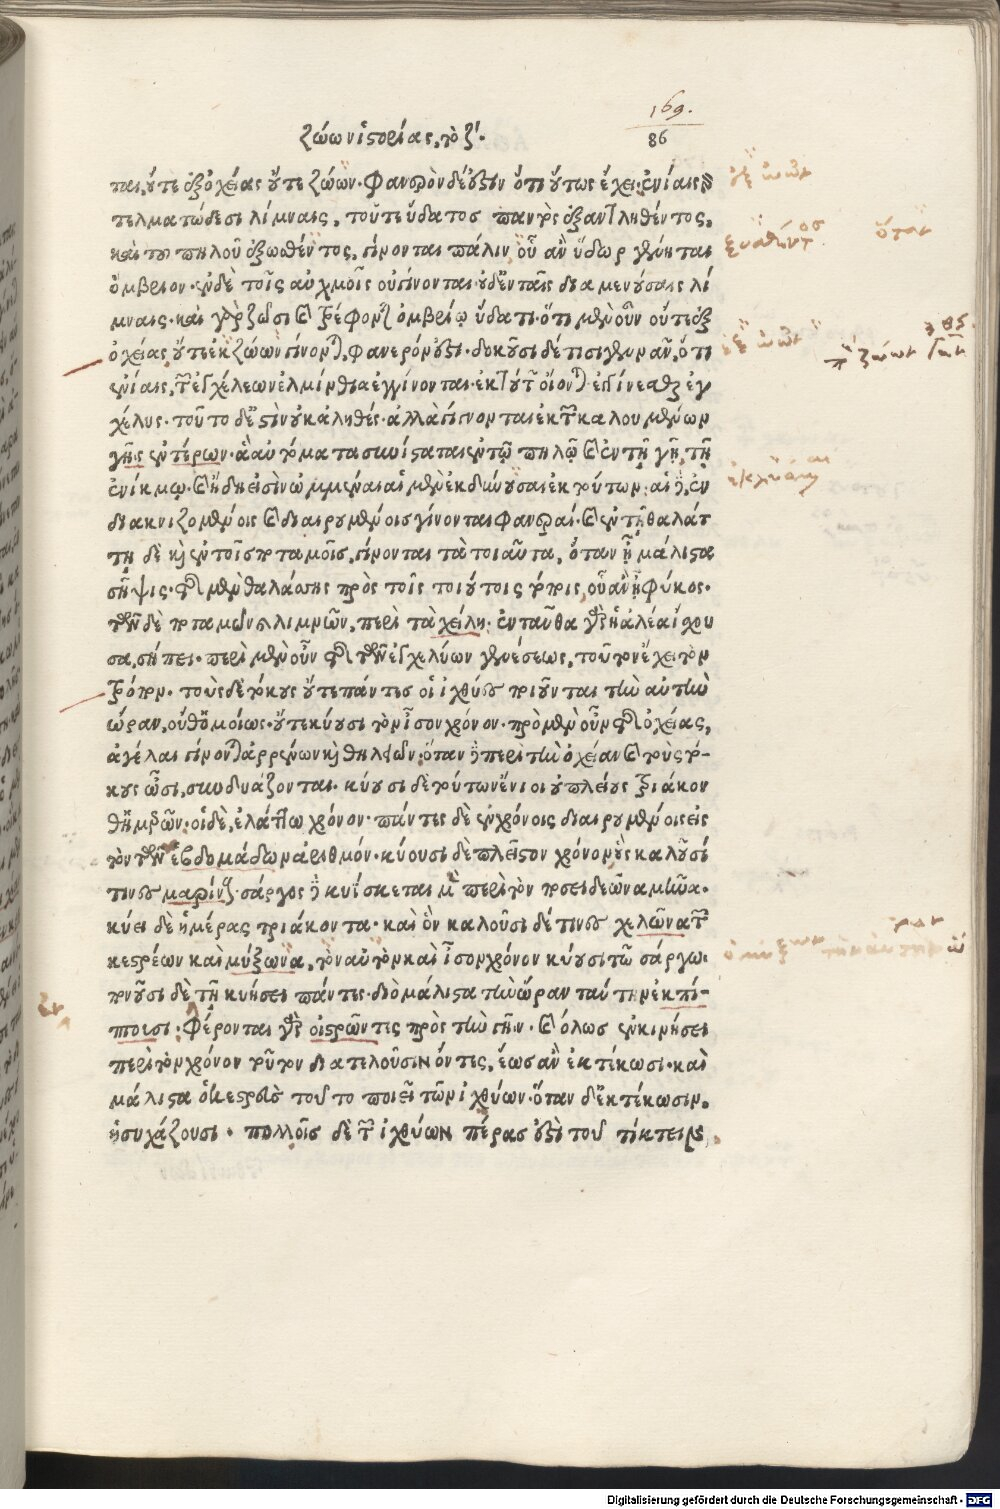 169.
86
ζώων ἱστορίας, τὸ ζ′.
ται, οὔτε ἐξ ὀχείας οὔτε ζώων. φανερὸν δέ ἐστιν ὅτι οὕτως ἔχει· ἐνίαις
τελματώδεσι λίμναις, τοῦ τε ὕδατος παντὸς ἐξαντληθέντος,
καὶ τοῦ πηλοῦ ἐξωσθέντος, γίνονται πάλιν, οὗ ἂν ὕδωρ γένηται
ὄμβριον· ἐν δὲ τοῖς αὐχμοῖς οὐ γίνονται οὐδ' ἐν ταῖς διαμενούσαις λί
μναις· καὶ γὰρ ζῶσι καὶ τρέφονται ὀμβρίῳ ὕδατι· ὅτι μὲν οὖν οὔτε ἐξ
ὀχείας οὔτε ἐκ ζώων γίνονται, φανερόν ἐστι· δοκοῦσι δέ τισι γεννᾶν, ὅτι
ἐνίαις τῶν ἐγχέλεων ἑλμίνθια ἐγγίνονται· ἐκ τούτων οἴονται γίνεσθαι ἐγ
χέλυς· τοῦτο δ' ἐστὶν οὐκ ἀληθές· ἀλλὰ γίνονται ἐκ τῶν καλουμένων
γῆς ἐντέρων· ἃ αὐτόματα συνίσταται ἐν τῷ πηλῷ καὶ ἐν τῇ γῇ, τῇ
ἐνίκμῳ· καὶ ἤδη εἰσὶν ὠμμέναι αἱ μὲν ἐκδύνουσαι ἐκ τούτων· αἱ δὲ, ἐν
διακνιζομένοις καὶ διαιρουμένοις γίνονται φανεραί. καὶ ἐν τῇ θαλάτ
τῃ δὲ καὶ ἐν τοῖς ποταμοῖς, γίνονται τὰ τοιαῦτα, ὅταν ᾖ μάλιστα
σῆψις· τῆς μὲν θαλάσσης πρὸς τοῖς τοιούτοις τόποις, οὗ ἂν ᾖ φύκος·
τῶν δὲ ποταμῶν καὶ λιμνῶν, περὶ τὰ χείλη· ἐνταῦθα γὰρ ἡ ἀλέα ἰσχύου
σα, σήπει· περὶ μὲν οὖν τῆς τῶν ἐγχελύων γενέσεως, τοῦτον ἔχει τὸν
τρόπον. τοὺς δὲ τόκους οὔτε πάντες οἱ ἰχθῦς ποιοῦνται τὴν αὐτὴν
ὥραν, οὔθ' ὁμοίως· οὔτε κύουσι τὸν ἴσον χρόνον· πρὸ μὲν οὖν τῆς ὀχείας,
ἀγέλαι γίνονται ἀρρένων καὶ θηλειῶν· ὅταν δὲ περὶ τὴν ὀχείαν καὶ τοὺς τό-
κους ὦσι, συνδυάζονται· κύουσι δὲ τούτων ἔνιοι οὐ πλείους τριάκον
θ' ἡμερῶν· οἱ δὲ, ἐλάττω χρόνον· πάντες δὲ ἐν χρόνοις διαιρουμένοις εἰς
τὸν τῶν ἑβδομάδων ἀριθμόν· κύουσι δὲ πλεῖστον χρόνον, οὓς καλοῦσί
τινες μαρίνους· σάργος δὲ κυΐσκεται μὲν περὶ τὸν ποσειδεῶνα μῆνα·
κύει δὲ ἡμέρας τριάκοντα· καὶ ὃν καλοῦσι δέ τινες χελῶνα τῶν
κεστρέων καὶ μύξωνα, τὸν αὐτὸν καὶ ἴσον χρόνον κύουσι τῷ σάργῳ·
πονοῦσι δὲ τῇ κυήσει πάντες· διὸ μάλιστα τὴν ὥραν ταύτην ἐκπί-
πτουσι· φέρονται γὰρ οἰστρῶντες πρὸς τὴν γῆν· καὶ ὅλως ἐν κινήσει
περὶ τὸν χρόνον τοῦτον διατελοῦσιν ὄντες, ἕως ἂν ἐκτέκωσι· καὶ
μάλιστα ὁ κεστρεὺς τοῦτο ποιεῖ τῶν ἰχθύων· ὅταν δ' ἐκτέκωσιν,
ἡσυχάζουσι· πολλοῖς δὲ τῶν ἰχθύων πέρας ἐστὶ τοῦ τίκτειν,
Digitalisierung gefördert durch die Deutsche Forschungsgemeinschaft - DFG